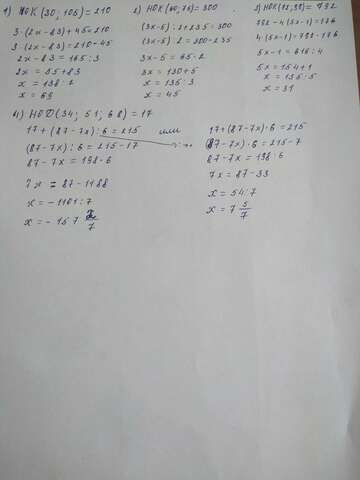 1) НОК (30; 105) = 210
3·(2x-83)+45=210
3·(2x-83)=210-45
2x-83=165:3
2x=55+83
x=138:2
x=69
2) НОК (60; 75) = 300
(3x-5):2+235=300
(3x-5)·2=300-235
3x-5=65·2
3x=130+5
x=135:3
x=45
3) НОК(72; 99) = 792
792-4(5x-1)=176
4(5x-1)=792-176
5x-1=616:4
5x=154+1
x=155:5
x=31
4) НОД (34; 51; 68) = 17
17+(87-7x):6=215 или
(87-7x):6=215-17
87-7x=198·6
7x=87-1188
x=-1101:7
x=-157 2/7
17+(87-7x)·6=215
(87-7x)·6=215-7
87-7x=198:6
7x=87-33
x=54:7
x=7 5/7